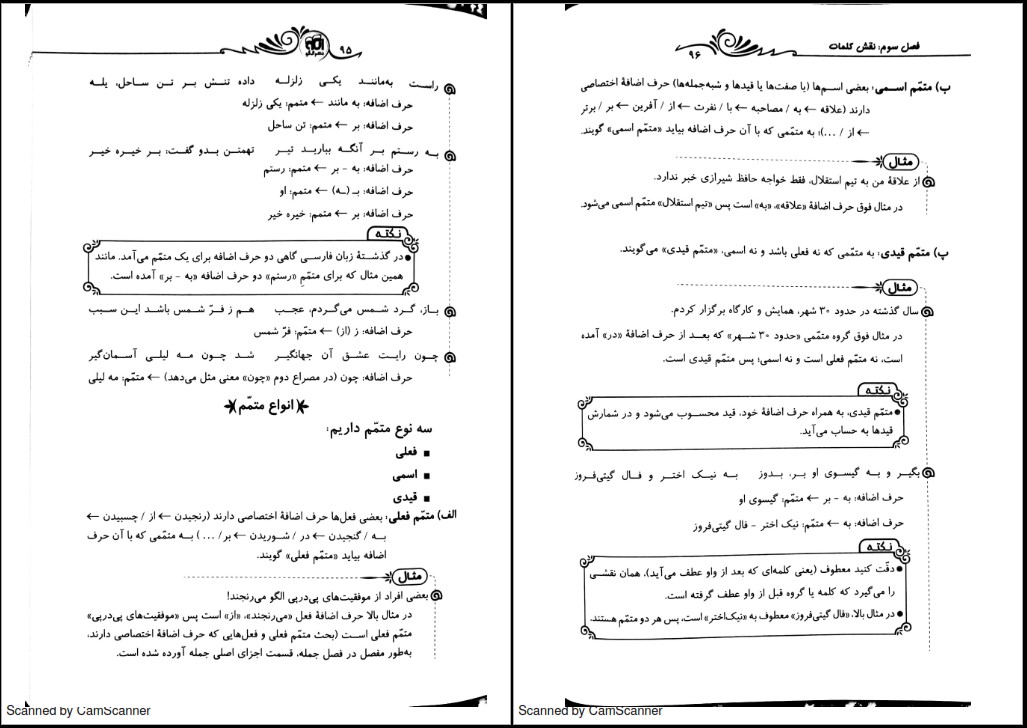 ۹۵
راست به‌مانند یکی زلزله داده تنش بر تن ساحل، یله
حرف اضافه: به مانند ← متمم: یکی زلزله
حرف اضافه: بر ← متمم: تن ساحل
به رستم بر آنگه ببارید تیر تهمتن بدو گفت: بر خیره خیر
حرف اضافه: به - بر ← متمم: رستم
حرف اضافه: بـ (به) ← متمم: او
حرف اضافه: بر ← متمم: خیره خیر
نکته
● در گذشتهٔ زبان فارسی گاهی دو حرف اضافه برای یک متمّم می‌آمد. مانند
همین مثال که برای متمّمِ «رستم» دو حرف اضافه «به - بر» آمده است.
باز، گرد شمس می‌گردم، عجب هم ز فرّ شمس باشد این سبب
حرف اضافه: ز (از) ← متمّم: فرّ شمس
چون رایت عشق آن جهانگیر شد چون مه لیلی آسمان‌گیر
حرف اضافه: چون (در مصراع دوم «چون» معنی مثل می‌دهد) ← متمّم: مه لیلی
انواع متمّم
سه نوع متمّم داریم:
■ فعلی
■ اسمی
■ قیدی
الف) متمّم فعلی: بعضی فعل‌ها حرف اضافهٔ اختصاصی دارند (رنجیدن ← از / چسبیدن ←
به / گنجیدن ← در / شوریدن ← بر/ ... ) به متمّمی که با آن حرف
اضافه بیاید «متمّم فعلی» گویند.
مثال
بعضی افراد از موفقیت‌های پی‌درپی الگو می‌رنجند!
در مثال بالا حرف اضافهٔ فعل «می‌رنجند»، «از» است پس «موفقیت‌های پی‌درپی»
متمّم فعلی است (بحث متمّم فعلی و فعل‌هایی که حرف اضافهٔ اختصاصی دارند،
به‌طور مفصل در فصل جمله، قسمت اجزای اصلی جمله آورده شده است.
Scanned by CamScanner
فصل سوم: نقش کلمات
۹۶
ب) متمّم اسمی: بعضی اسم‌ها (یا صفت‌ها یا قیدها و شبه‌جمله‌ها) حرف اضافهٔ اختصاصی
دارند (علاقه ← به / مصاحبه ← با / نفرت ← از / آفرین ← بر / برتر
← از / ...)؛ به متمّمی که با آن حرف اضافه بیاید «متمّم اسمی» گویند.
مثال
از علاقهٔ من به تیم استقلال، فقط خواجه حافظ شیرازی خبر ندارد.
در مثال فوق حرف اضافهٔ «علاقه»، «به» است پس «تیم استقلال» متمّم اسمی می‌شود.
پ) متمّم قیدی: به متمّمی که نه فعلی باشد و نه اسمی، «متمّم قیدی» می‌گویند.
مثال
سال گذشته در حدود ۳۰ شهر، همایش و کارگاه برگزار کردم.
در مثال فوق گروه متمّمی «حدود ۳۰ شهر» که بعد از حرف اضافهٔ «در» آمده
است، نه متمّم فعلی است و نه اسمی؛ پس متمّم قیدی است.
نکته
● متمّم قیدی، به همراه حرف اضافهٔ خود، قید محسوب می‌شود و در شمارش
قیدها به حساب می‌آید.
بگیر و به گیسوی او بر، بدوز به نیک اختر و فال گیتی‌فروز
حرف اضافه: به - بر ← متمّم: گیسوی او
حرف اضافه: به ← متمّم: نیک اختر - فال گیتی‌فروز
نکته
● دقّت کنید معطوف (یعنی کلمه‌ای که بعد از واو عطف می‌آید)، همان نقشی
را می‌گیرد که کلمه یا گروه قبل از واو عطف گرفته است.
● در مثال بالا، «فال گیتی‌فروز» معطوف به «نیک‌اختر» است، پس هر دو متمّم هستند.
Scanned by CamScanner